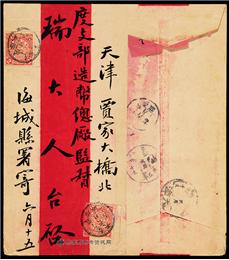 天津賈家大橋北
度支部造幣總廠監督
瑞大人台啓
海城縣署寄六月十五